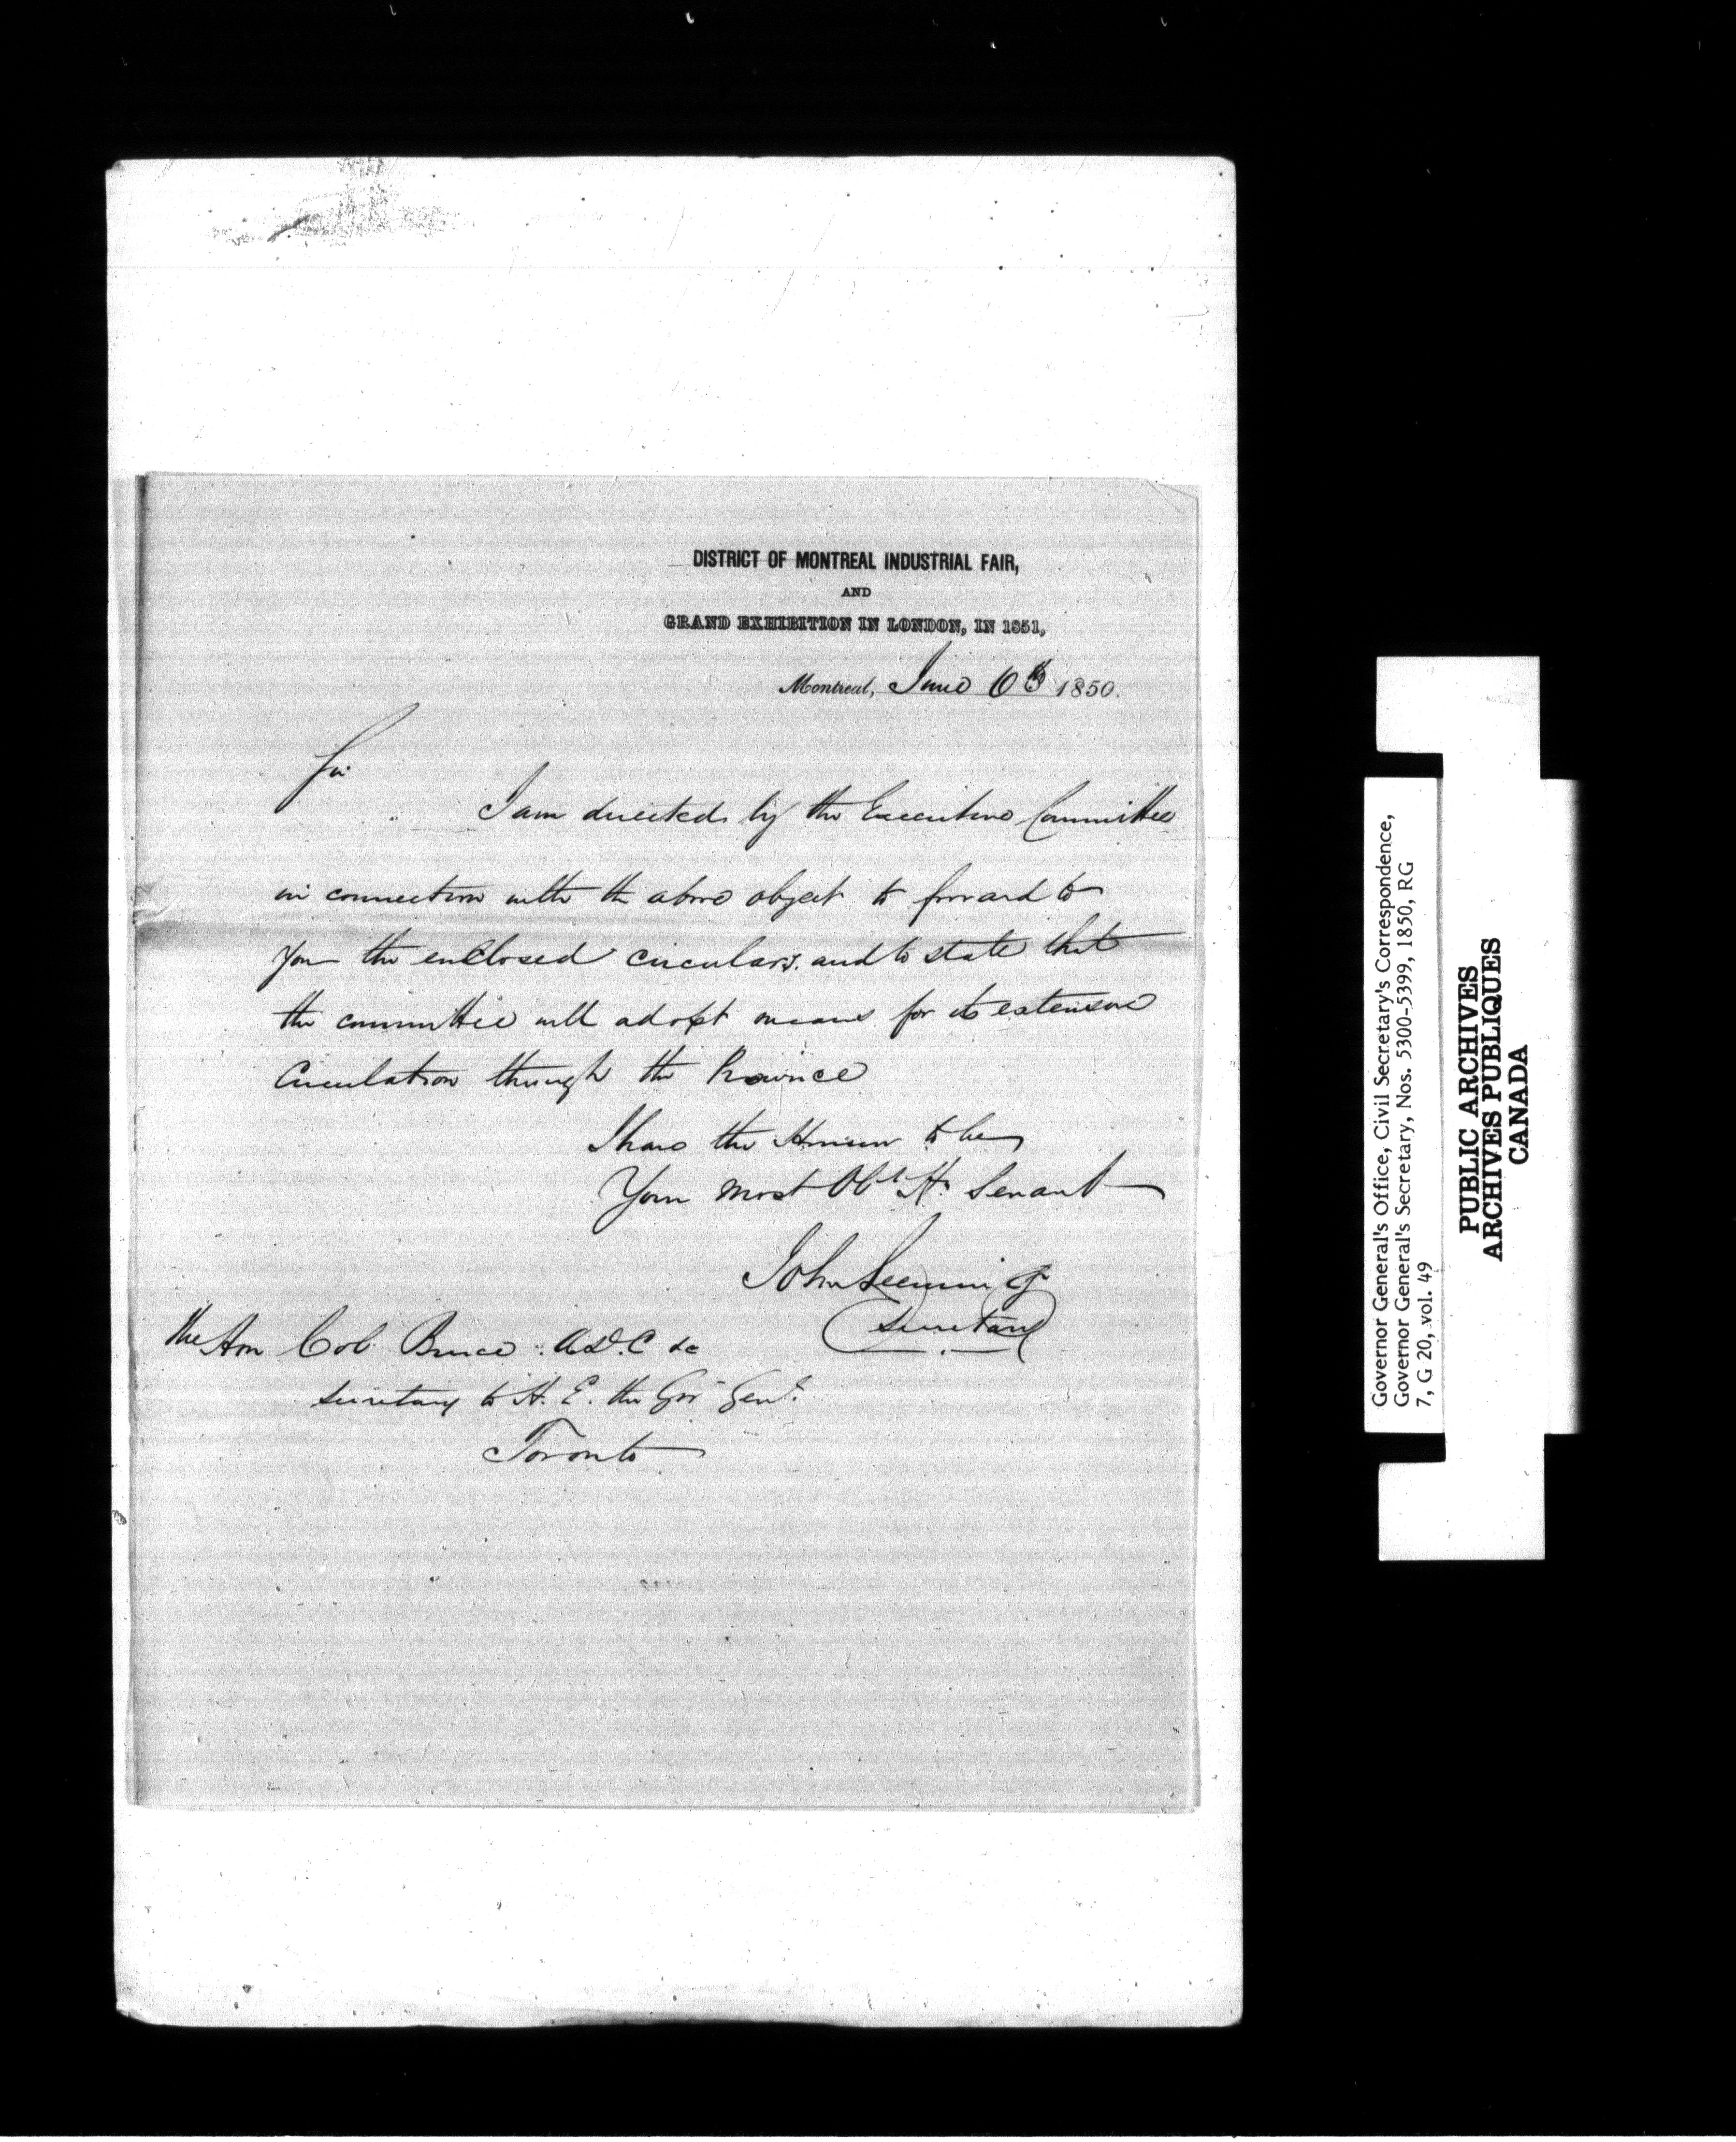 DISTRICT OF MONTREAL INDUSTRIAL FAIR,
AND
GRAND EXHIBITION IN LONDON, IN 1851,
Montreal, June 6th 1850.
Sir
I am directed by the Executive Committee
in connection with the above object to forward to
you the enclosed circulars. and to state that
the committee will adopt means for its extensive
Circulation through the Province
I have the Honour to be
Your most Obt. H. Servant
John Leeming
Secretary
The Hon Col. Bruce. A.D.C &c
Secretary to H. E. the Gov Genl.
Toronto
Governor General's Office, Civil Secretary's Correspondence,
Governor General's Secretary, Nos. 5300-5399, 1850, RG
7, G 20, vol. 49
PUBLIC ARCHIVES
ARCHIVES PUBLIQUES
CANADA